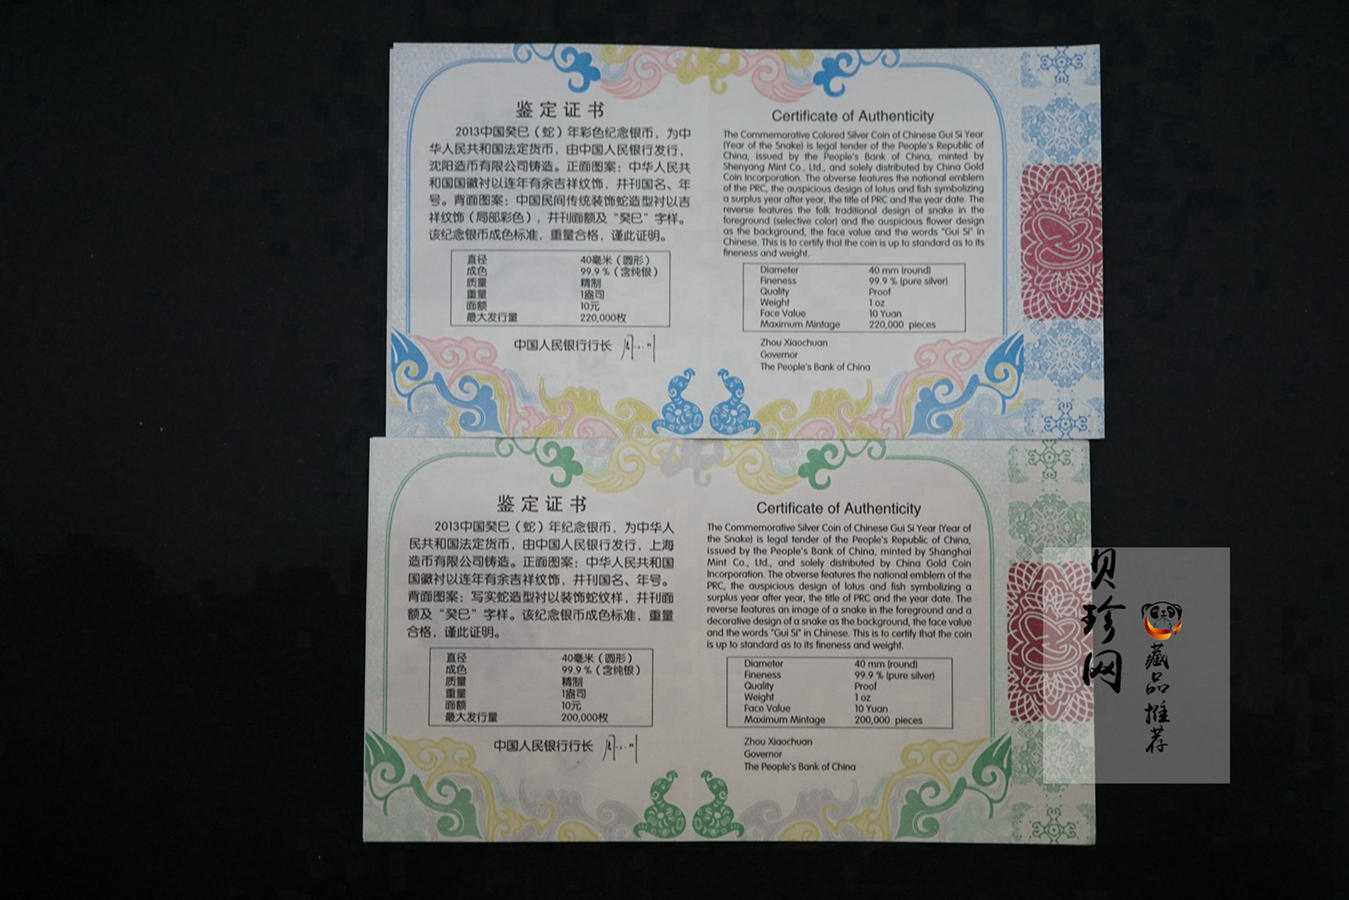 鉴定证书
2013中国癸巳（蛇）年彩色纪念银币，为中
华人民共和国法定货币，由中国人民银行发行，
沈阳造币有限公司铸造。正面图案：中华人民共
和国国徽衬以连年有余吉祥纹饰，并刊国名、年
号。背面图案：中国民间传统装饰蛇造型衬以吉
祥纹饰（局部彩色），并刊面额及“癸巳”字样。
该纪念银币成色标准，重量合格，谨此证明。
直径 40毫米（圆形）
成色 99.9％（含纯银）
质量 精制
重量 1盎司
面额 10元
最大发行量 220,000枚
中国人民银行行长
Certificate of Authenticity
The Commemorative Colored Silver Coin of Chinese Gui Si Year
(Year of the Snake) is legal tender of the People's Republic of
China, issued by the People's Bank of China, minted by
Shenyang Mint Co., Ltd., and solely distributed by China Gold
Coin Incorporation. The obverse features the national emblem
of the PRC, the auspicious design of lotus and fish symbolizing
a surplus year after year, the title of PRC and the year date. The
reverse features the folk traditional design of snake in the
foreground (selective color) and the auspicious flower design
as the background, the face value and the words "Gui Si" in
Chinese. This is to certify that the coin is up to standard as to its
fineness and weight.
Diameter 40 mm (round)
Fineness 99.9 % (pure silver)
Quality Proof
Weight 1 oz
Face Value 10 Yuan
Maximum Mintage 220,000 pieces
Zhou Xiaochuan
Governor
The People's Bank of China
鉴定证书
2013中国癸巳（蛇）年纪念银币，为中华人
民共和国法定货币，由中国人民银行发行，上海
造币有限公司铸造。正面图案：中华人民共和国
国徽衬以连年有余吉祥纹饰，并刊国名、年号。
背面图案：写实蛇造型衬以装饰蛇纹样，并刊面
额及“癸巳”字样。该纪念银币成色标准，重量
合格，谨此证明。
直径 40毫米（圆形）
成色 99.9％（含纯银）
质量 精制
重量 1盎司
面额 10元
最大发行量 200,000枚
中国人民银行行长
Certificate of Authenticity
The Commemorative Silver Coin of Chinese Gui Si Year (Year of
the Snake) is legal tender of the People's Republic of China,
issued by the People's Bank of China, minted by Shanghai
Mint Co., Ltd., and solely distributed by China Gold Coin
Incorporation. The obverse features the national emblem of the
PRC, the auspicious design of lotus and fish symbolizing a
surplus year after year, the title of PRC and the year date. The
reverse features an image of a snake in the foreground and a
decorative design of a snake as the background, the face value
and the words "Gui Si" in Chinese. This is to certify that the coin
is up to standard as to its fineness and weight.
Diameter 40 mm (round)
Fineness 99.9 % (pure silver)
Quality Proof
Weight 1 oz
Face Value 10 Yuan
Maximum Mintage 200,000 pieces
Zhou Xiaochuan
Governor
The People's Bank of China
贝珍网
藏品推荐